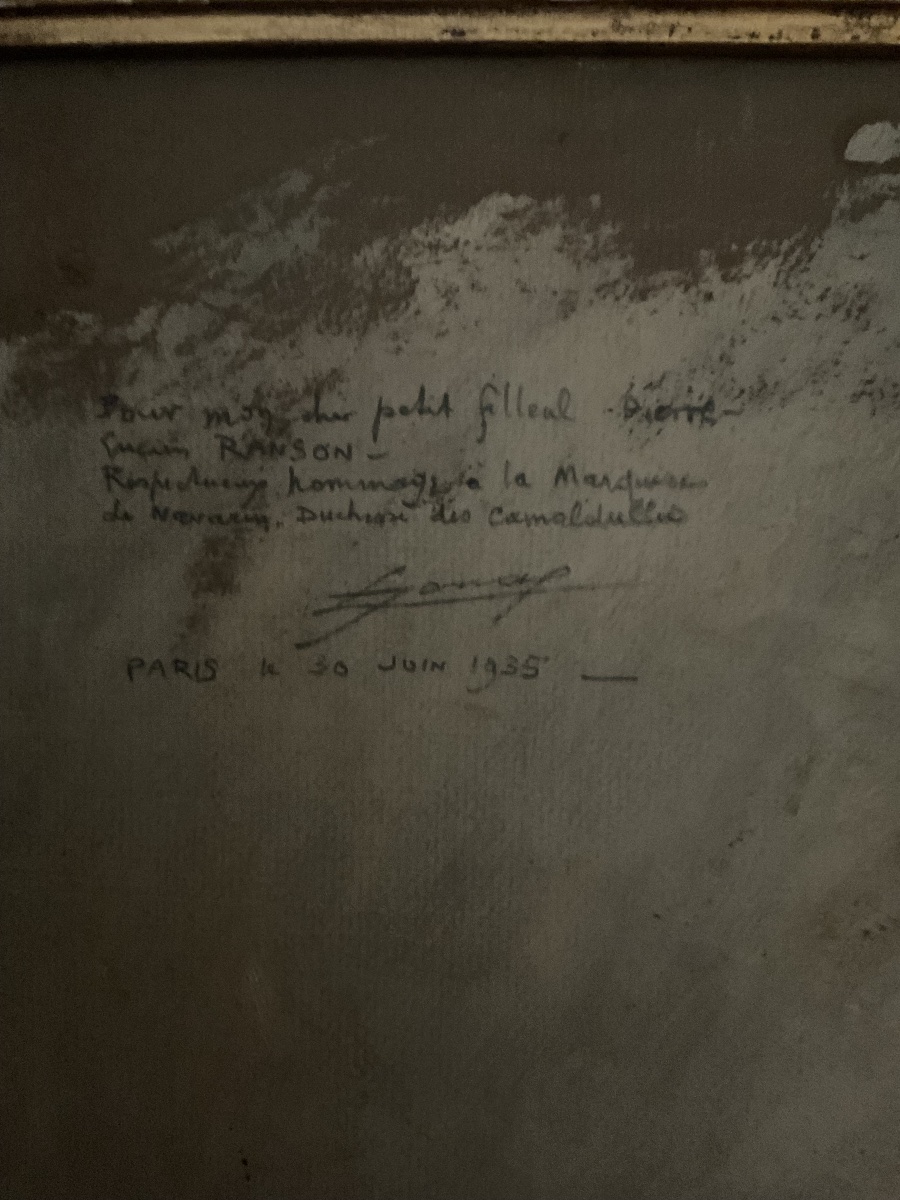 Pour mon cher petit filleul Pierre-
Lucien RANSON -
Respectueux hommage à la Marquise
de Navarin, Duchesse des Camaldulles
PARIS le 30 JUIN 1935 —